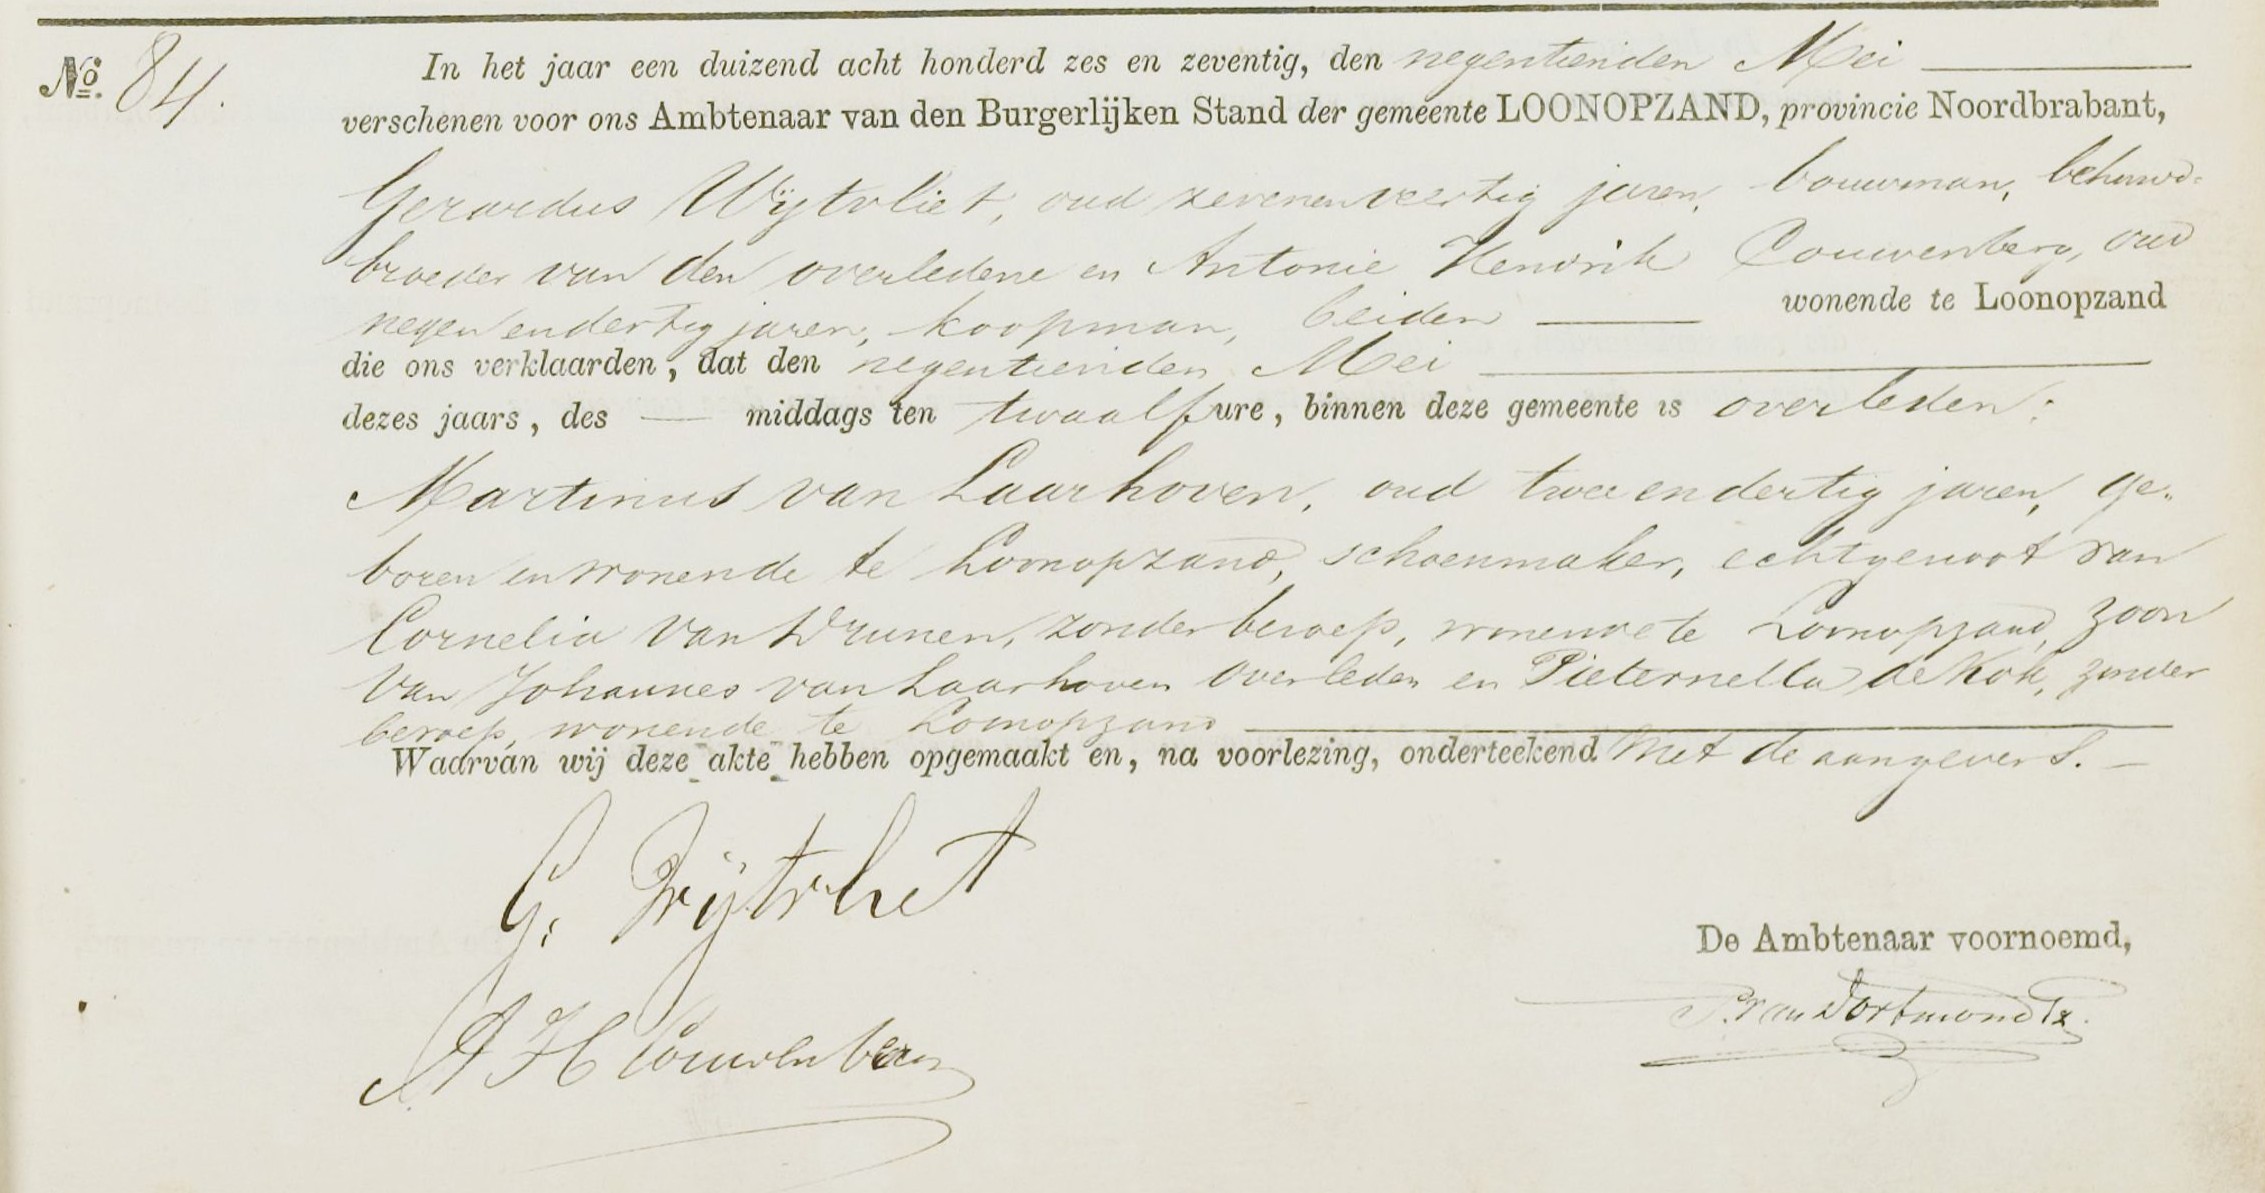 No. 84.
In het jaar een duizend acht honderd zes en zeventig, den negentienden Mei
verschenen voor ons Ambtenaar van den Burgerlijken Stand der gemeente LOONOPZAND, provincie Noordbrabant,
Gerardus Wijtvliet, oud zevenenveertig jaren, bouwman, behuwd-
broeder van den overledene en Antonie Hendrik Couwenberg, oud
negen en dertig jaren, koopman, beiden wonende te Loonopzand
die ons verklaarden, dat den negentienden Mei
dezes jaars, des — middags ten twaalf ure, binnen deze gemeente is overleden:
Martinus van Laarhoven, oud twee en dertig jaren, ge-
boren en wonende te Loonopzand, schoenmaker, echtgenoot van
Cornelia van Drunen, zonder beroep, wonende te Loonopzand, zoon
van Johannes van Laarhoven overleden en Pieternella de Kok, zonder
beroep, wonende te Loonopzand
Waarvan wij deze akte hebben opgemaakt en, na voorlezing, onderteekend met de aangevers. —
G. Wijtvliet
De Ambtenaar voornoemd,
P. van Dortmond Pz.
A H Couwenberg